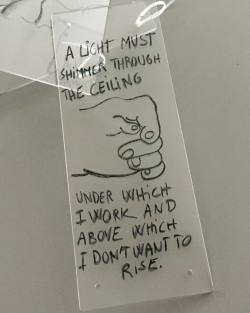 A LIGHT MUST
SHIMMER THROUGH
THE CEILING
UNDER WHiCH
I WORK AND
ABOVE WHiCH
I DON'T WANT TO
RISE.